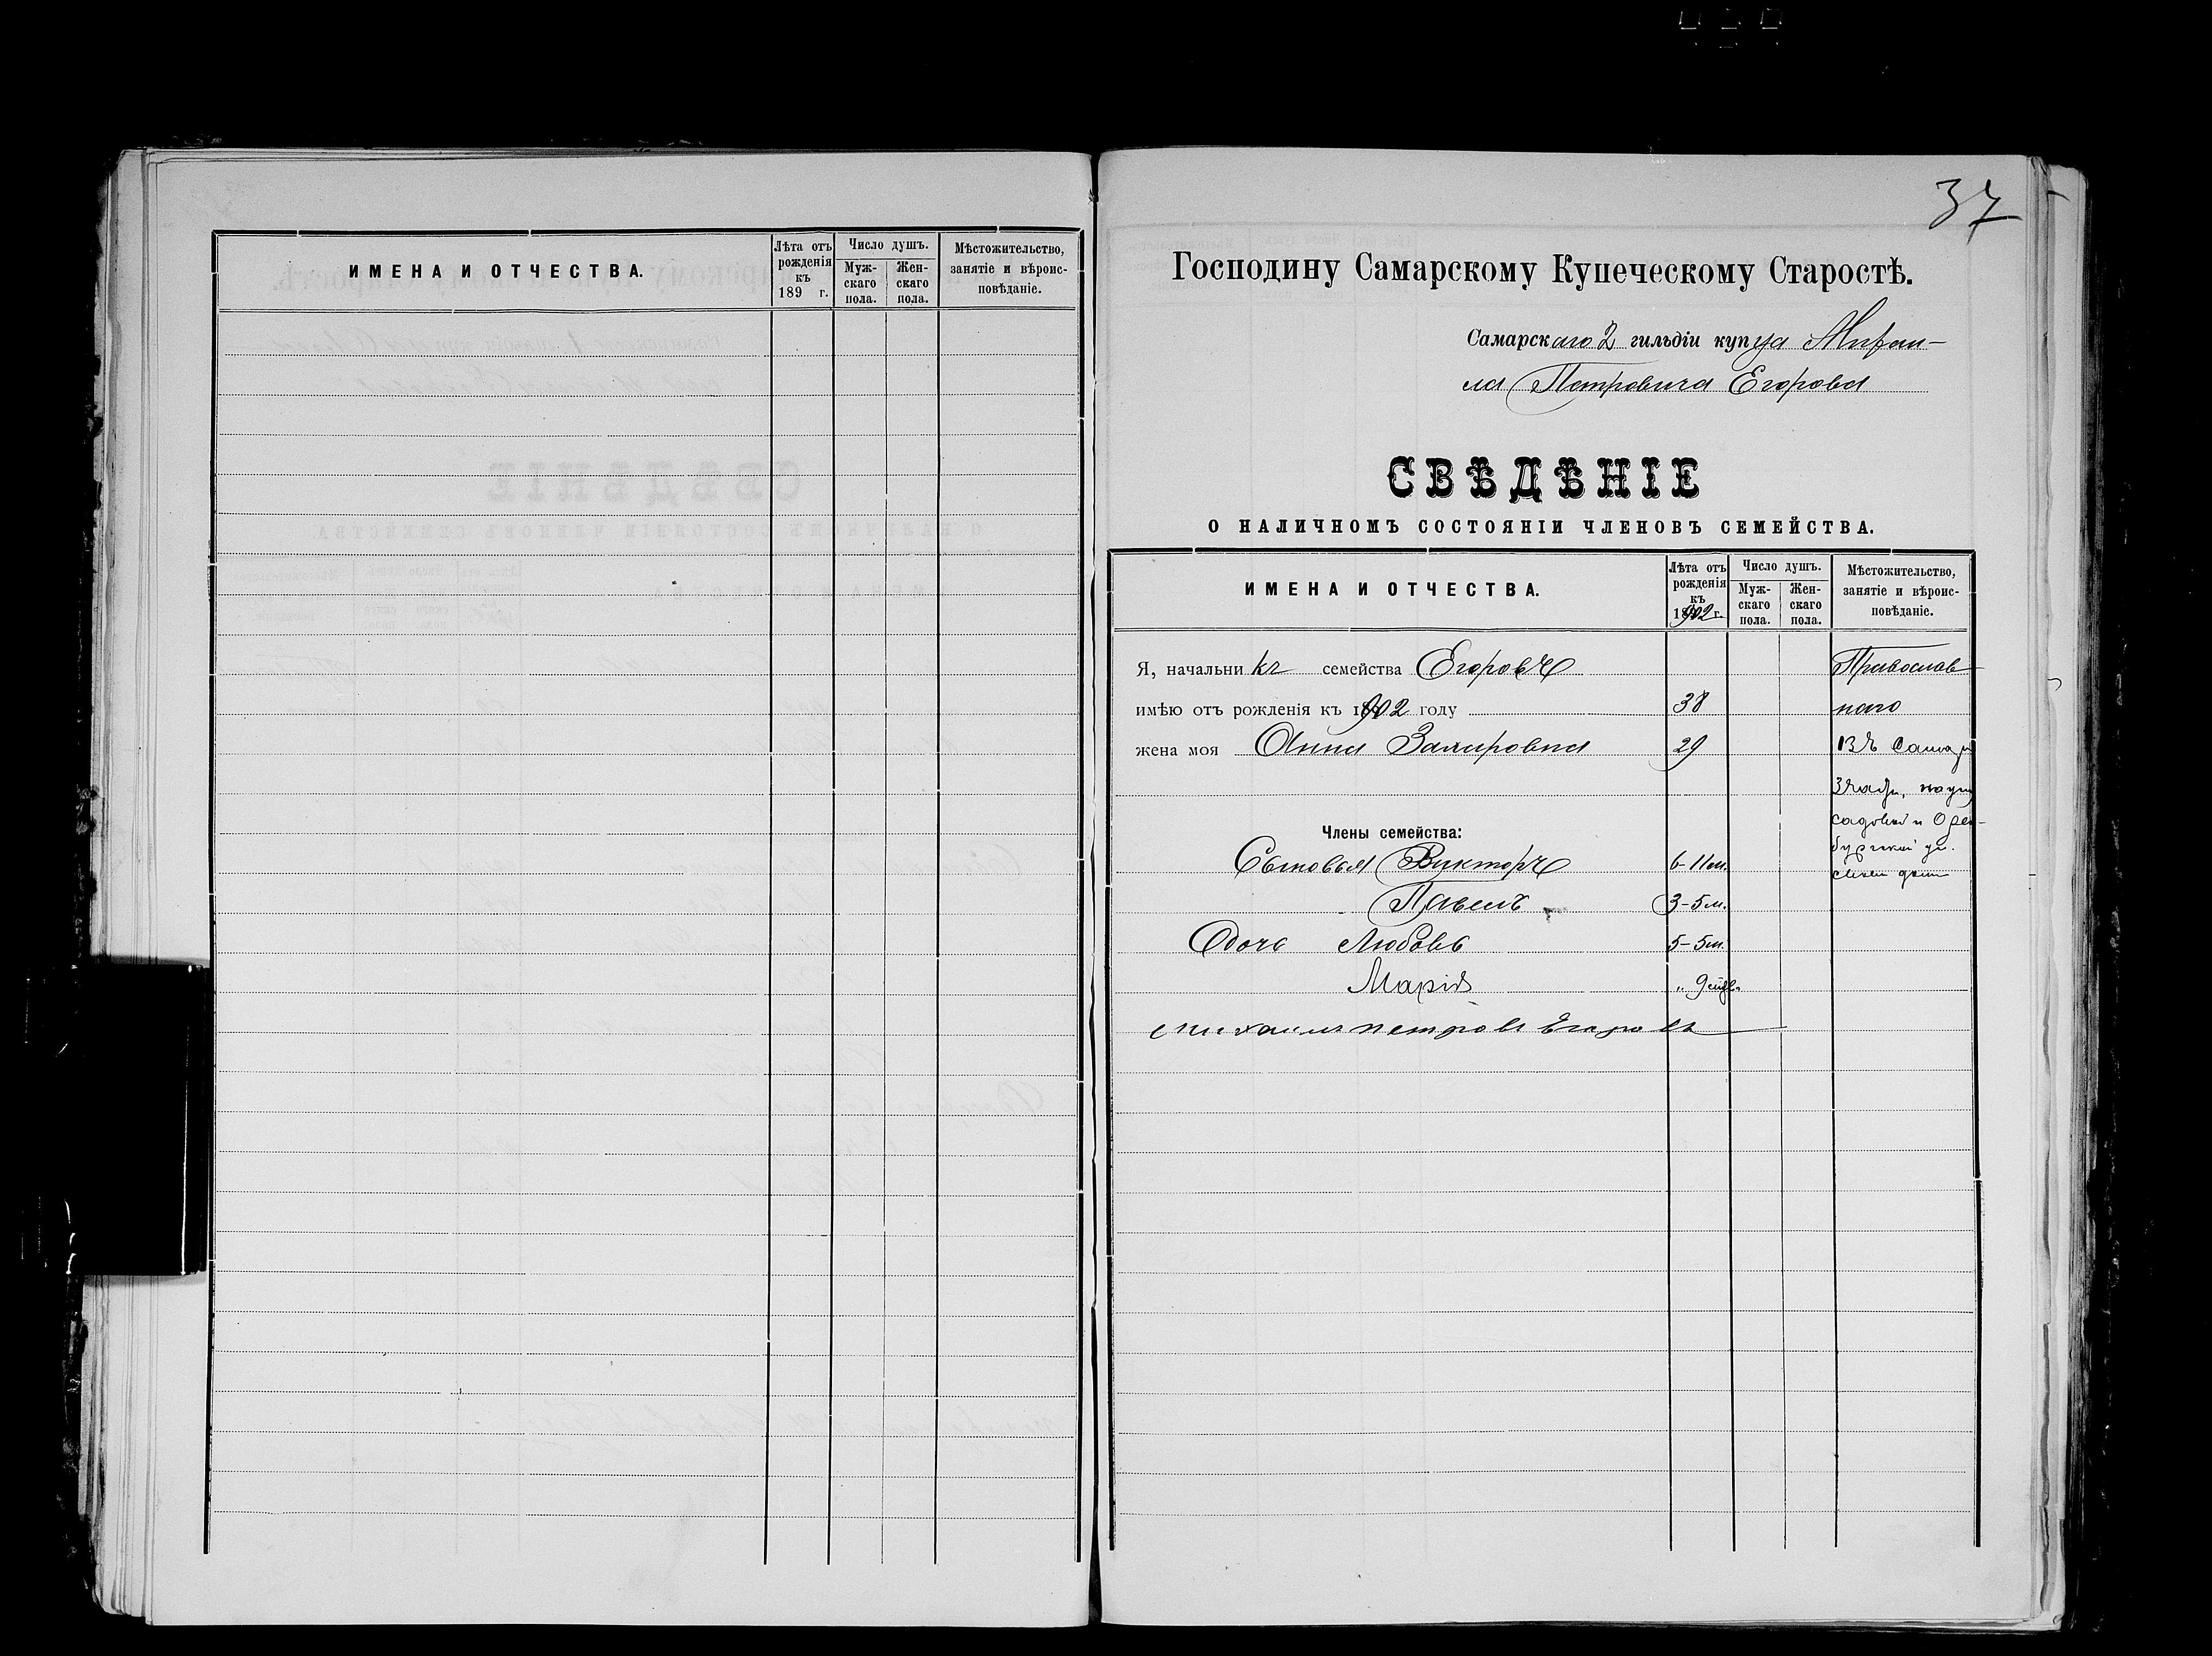 ИМЕНА И ОТЧЕСТВА.
Лѣта отъ рожденія къ 189 г.
Число душъ.
Мужскаго пола.
Женскаго пола.
Мѣстожительство, занятіе и вѣроисповѣданіе.
37
Господину Самарскому Купеческому Старостѣ.
Самарскаго 2 гильдіи купца Михаи-
ла Петровича Егорова
СВѢДѢНІЕ
О НАЛИЧНОМЪ СОСТОЯНІИ ЧЛЕНОВЪ СЕМЕЙСТВА.
ИМЕНА И ОТЧЕСТВА.
Лѣта отъ рожденія къ 1902 г.
Число душъ.
Мужскаго пола.
Женскаго пола.
Мѣстожительство, занятіе и вѣроисповѣданіе.
Я, начальникъ семейства Егоровъ Православ
имѣю отъ рожденія къ 1902 году 38 наго
жена моя Анна 29 Въ Самар
3 части, на углу
садовой и Орен-
Члены семейства:
бургской ул.
Сыновья Викторъ 6-11 м. свой домъ
Павелъ 3-5 м.
Дочь Любовь 5-5 м.
Марія " 9
Михаилъ Петровъ Егоровъ